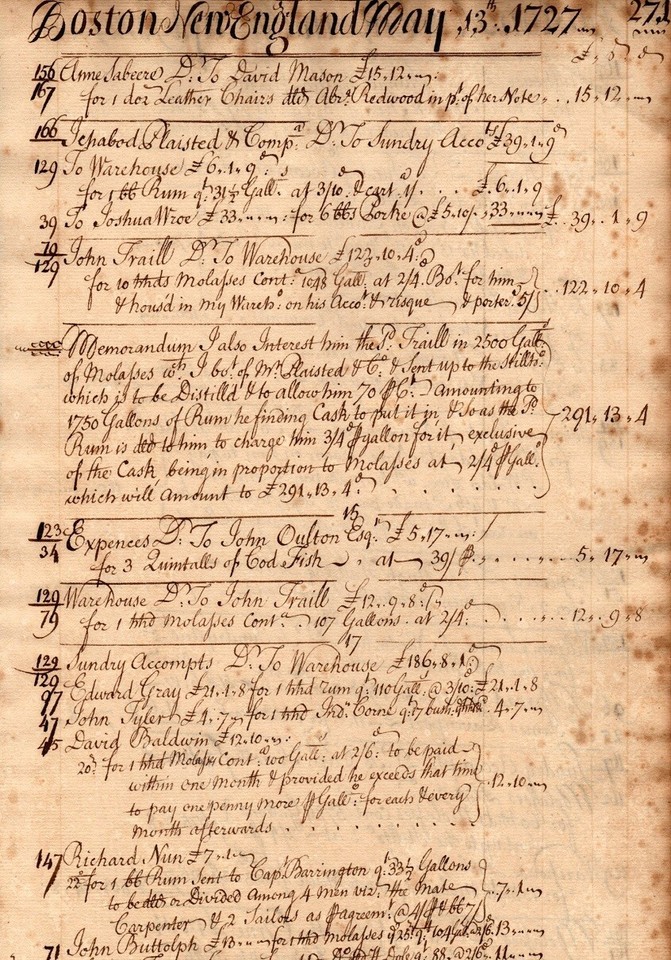 Boston New England May 13th. 1727 274
£ s d
156 Anne Sabeere Dr. To David Mason £15,12
167 for 1 doz Leather Chairs dd Abr. Redwood in pt. of her Note 15,12
166 Jehabod Plaisted & Comp.a Dr. To Sundry Acco.ts £39,1,9
129 To Warehouse £6,1,9
for 1 bb Rum qt. 31½ Gall. at 3/10 & cart 1/ £6,1,9
39 To Joshua Wroe £33 for 6 bbs Porke @ £5,10/ 33 £39,,1,,9
79 John Traill Dr. To Warehouse £122,10,4
129 for 10 hhds Molasses Cont. 1048 Gall. at 2/4 Bot. for him
& hous'd in my Wareh. on his Acco. & risque & porter 5/ 122,,10,,4
Memorandum I also Interest him the Sd. Traill in 2500 Gall.
of Molasses wch. I bot. of Mr. Plaisted & Co. & sent up to the Stillho.
which is to be Distilld & to allow him 70 P Ct. amounting to
1750 Gallons of Rum he finding Cask to put it in, & so as the Sd.
Rum is dd to him to charge him 3/4 P gallon for it, exclusive
of the Cask, being in proportion to Molasses at 2/4 P Gall.
which will amount to £291,13,4 291,,13,,4
15
123 Expences Dr. To John Oulton Esqr. £5,17
34 for 3 Quintalls of Cod Fish at 39/ P 5,17
129 Warehouse Dr. To John Traill £12,,9,,8
79 for 1 hhd Molasses Cont. 107 Gallons at 2/4 12,,9,,8
17
129 Sundry Accompts Dr. To Warehouse £186,8,1
129
97 Edward Gray £21,1,8 for 1 hhd rum qt. 110 Gall. @ 3/10 £21,1,8
47 John Tyler £4,7 for 1 hhd Ind. Corne qt. 17 bush. 4,7
45 David Baldwin £12,10
20 for 1 hhd Molasses Cont. 100 Gall. at 2/6 to be paid
within one Month & provided he exceeds that time
to pay one penny more P Gall. for each & every
Month afterwards 12,10
147 Richard Nun £7,1
22 for 1 bb Rum Sent to Capt. Barrington qt. 33½ Gallons
to be dd or Divided Among 4 Men viz. the Mate
Carpenter & 2 Sailors as P agreemt. @ 4/ P & bb 7/ 7,1
71 John Buttolph £13 for 1 hhd Molasses qt. 104 Gall. @ 2/6 13
88 @ 2/6 11